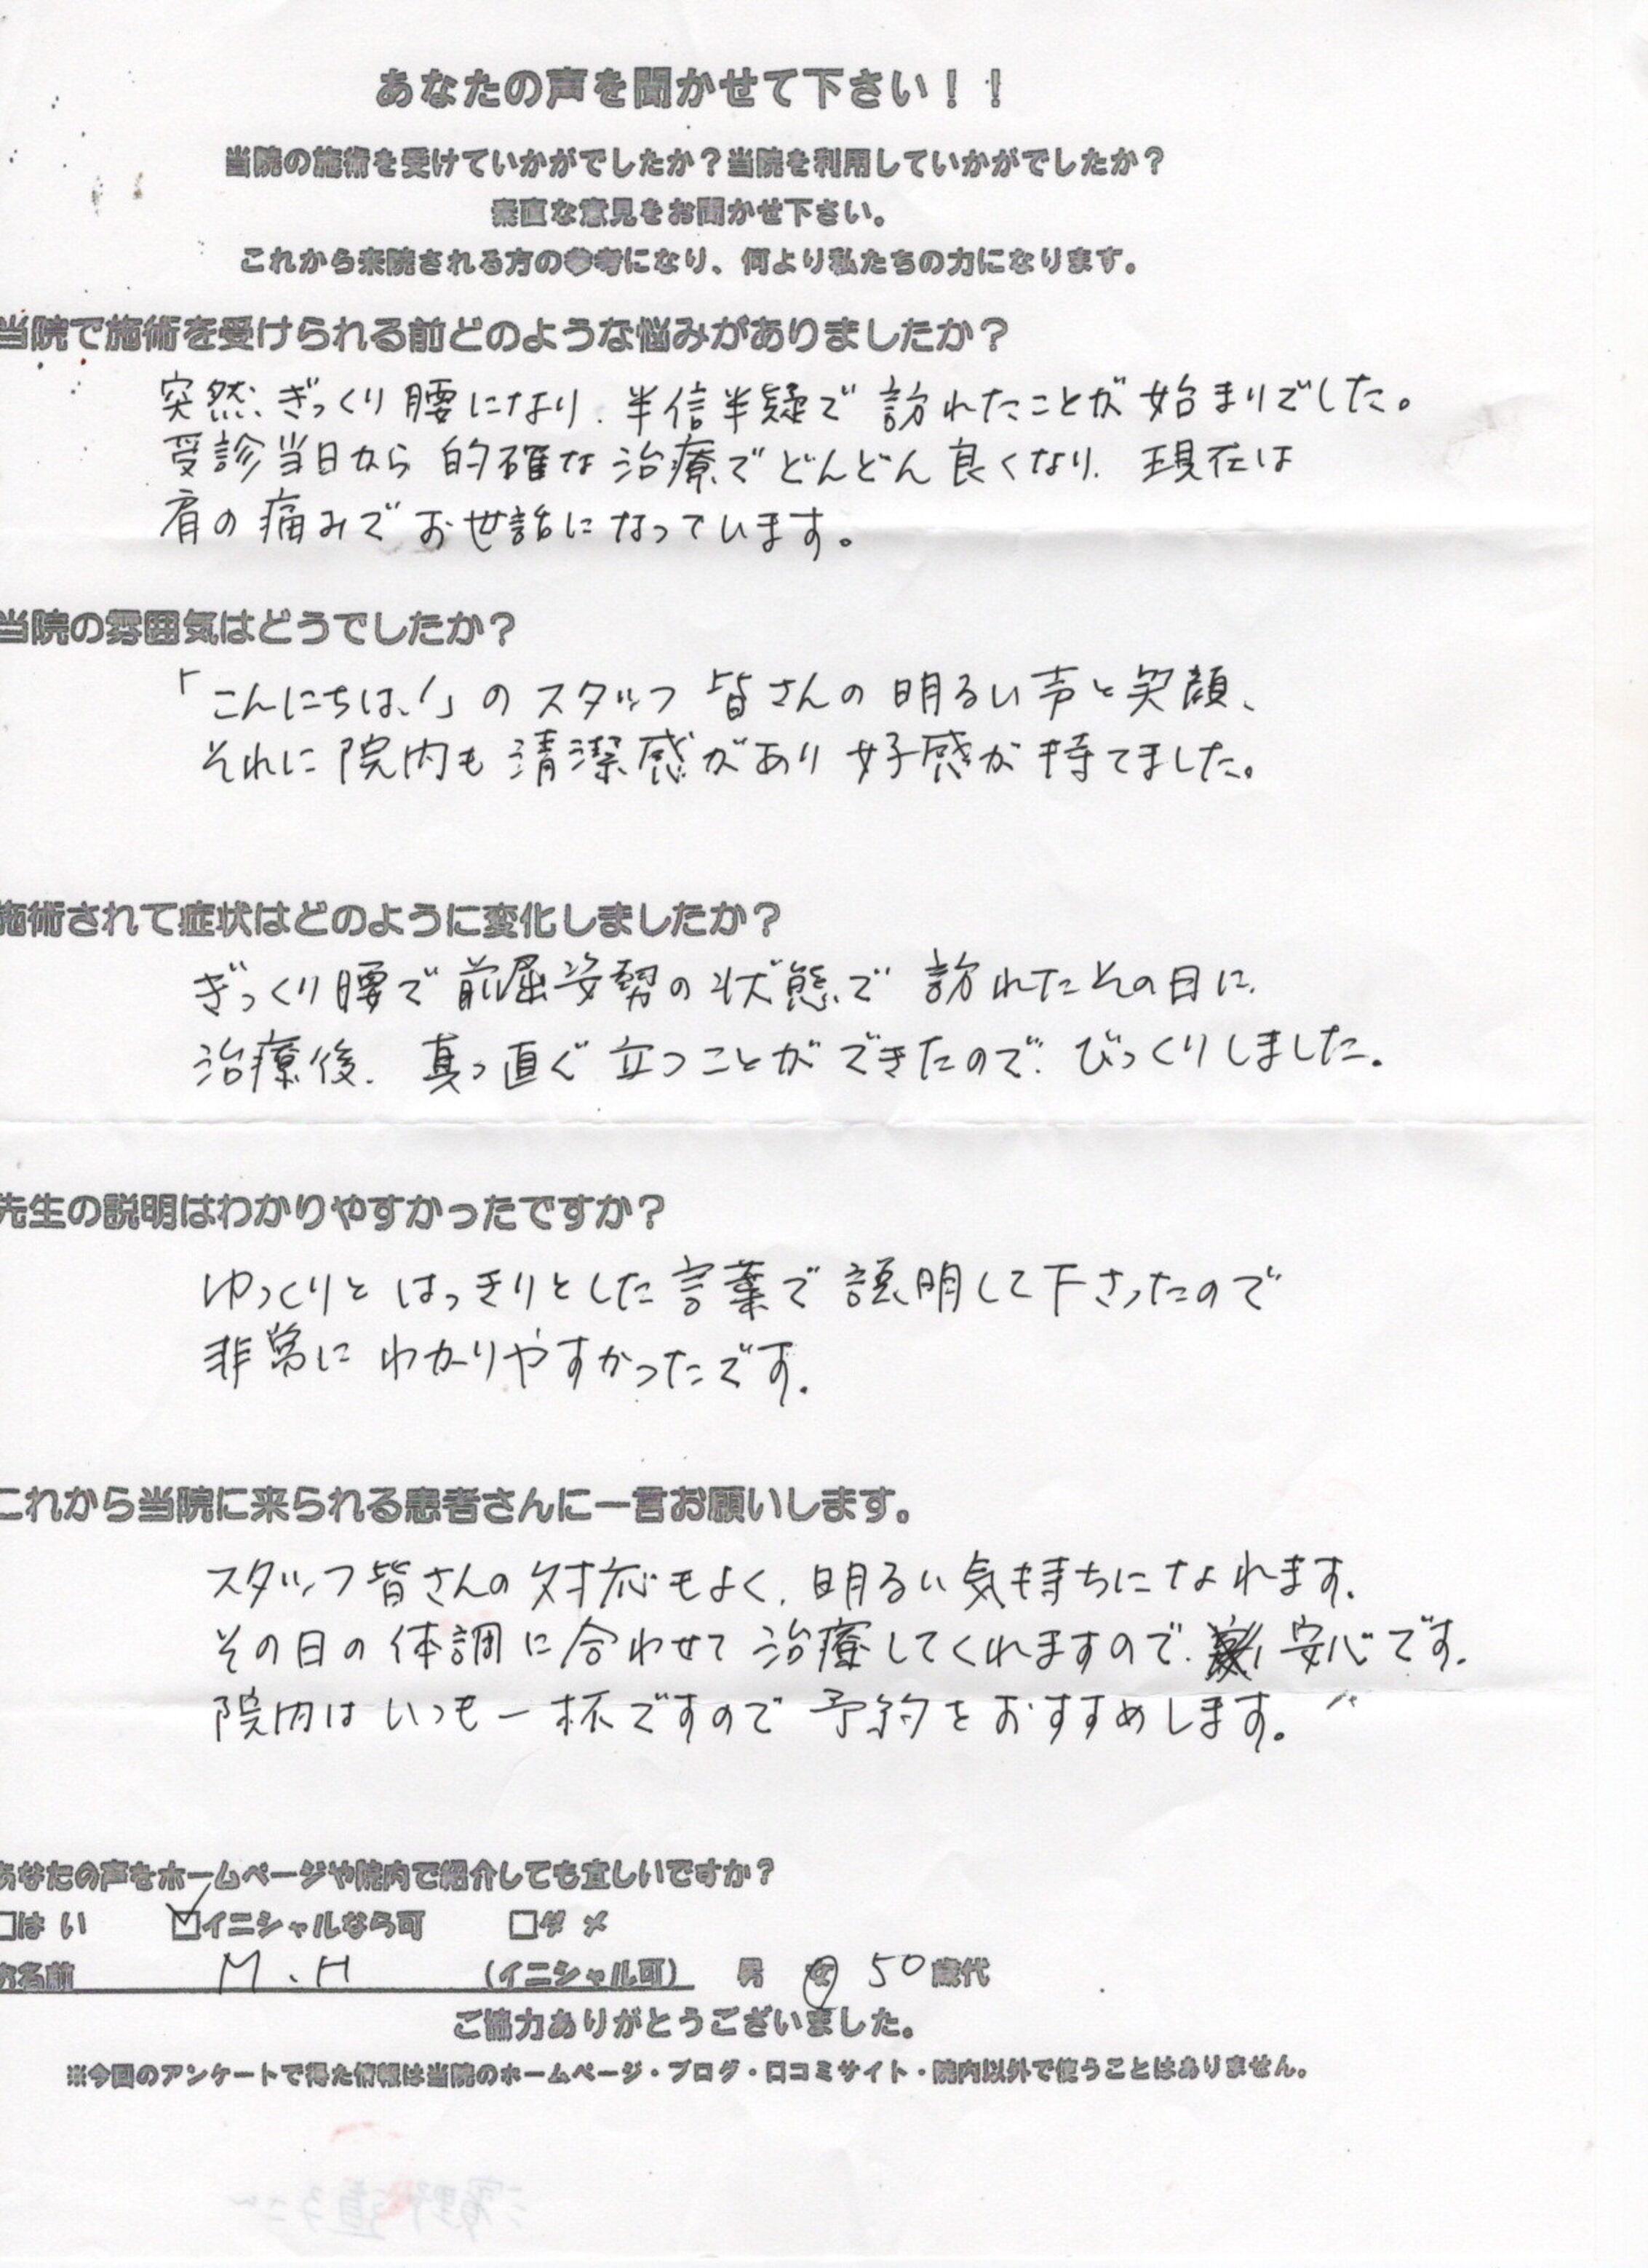 あなたの声を聞かせて下さい！！
当院の施術を受けていかがでしたか？当院を利用していかがでしたか？
素直な意見をお聞かせ下さい。
これから来院される方の参考になり、何より私たちの力になります。
当院で施術を受けられる前どのような悩みがありましたか？
突然、ぎっくり腰になり、半信半疑で訪れたことが始まりでした。
受診当日から的確な治療でどんどん良くなり、現在は
肩の痛みでお世話になっています。
当院の雰囲気はどうでしたか？
「こんにちは、！」のスタッフ皆さんの明るい声と笑顔、
それに院内も清潔感があり好感が持てました。
施術されて症状はどのように変化しましたか？
ぎっくり腰で前屈姿勢の状態で訪れたその日に、
治療後、真っ直ぐ立つことができたので、びっくりしました。
先生の説明はわかりやすかったですか？
ゆっくりとはっきりとした言葉で説明して下さったので
非常にわかりやすかったです。
これから当院に来られる患者さんに一言お願いします。
スタッフ皆さんの対応もよく、明るい気持ちになれます。
その日の体調に合わせて治療してくれますので、安心です。
院内はいつも一杯ですので予約をおすすめします。
あなたの声をホームページや院内で紹介しても宜しいですか？
□はい ☑イニシャルなら可 □ダメ
お名前 M.H （イニシャル可） 男 女 50歳代
ご協力ありがとうございました。
※今回のアンケートで得た情報は当院のホームページ・ブログ・口コミサイト・院内以外で使うことはありません。